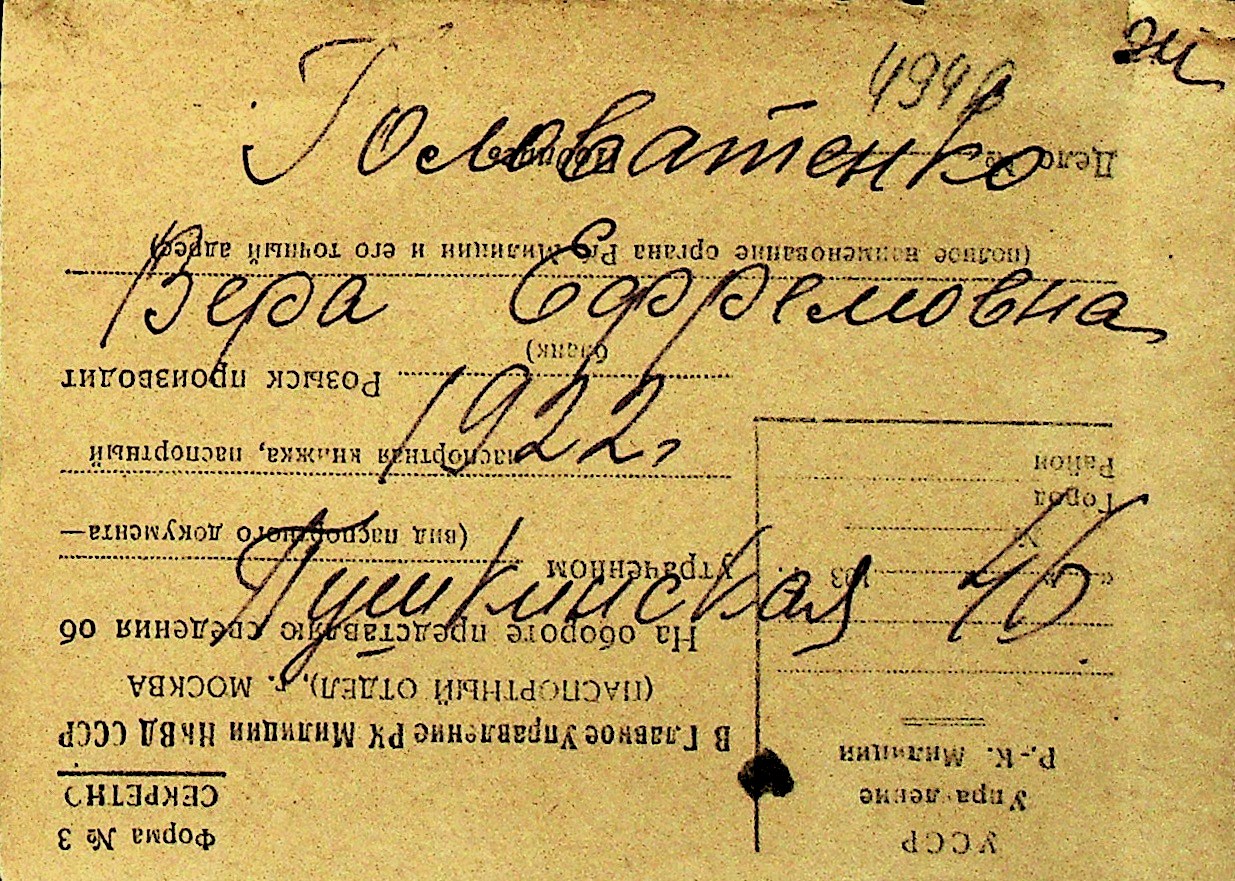 494
Головатенко
Вера Ефремовна
1922г
Пушкинская 46
Форма № 3
СЕКРЕТНО
УССР
Управление
Р.-К. Милиции
Район
Город
193
В Главное Управление РК Милиции НКВД СССР
(ПАСПОРТНЫЙ ОТДЕЛ), г. МОСКВА
На обороте представляю сведения об
утраченном
(вид паспортного документа—
паспортная книжка, паспортный
бланк)
Розыск производит
(полное наименование органа РК Милиции и его точный адрес)
Дело №